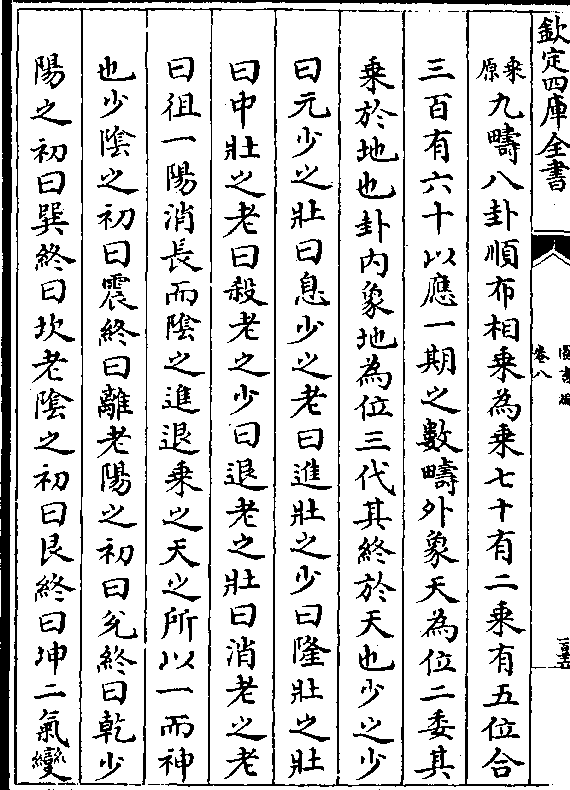 欽定四庫全書
卷八
乘原九疇八卦順布相乘為乘七十有二乘有五位合
三百有六十以應一期之數疇外象天為位二委其
乘於地也卦內象地為位三代其終於天也少之少
曰元少之壯曰息少之老曰進壯之少曰隆壯之壯
曰中壯之老曰殺老之少曰退老之壯曰消老之老
曰徂一陽消長而陰之進退乘之天之所以一而神
也少陰之初曰震終曰離老陽之初曰兊終曰乾少
陽之初曰巽終曰坎老陰之初曰艮終曰坤二氣變